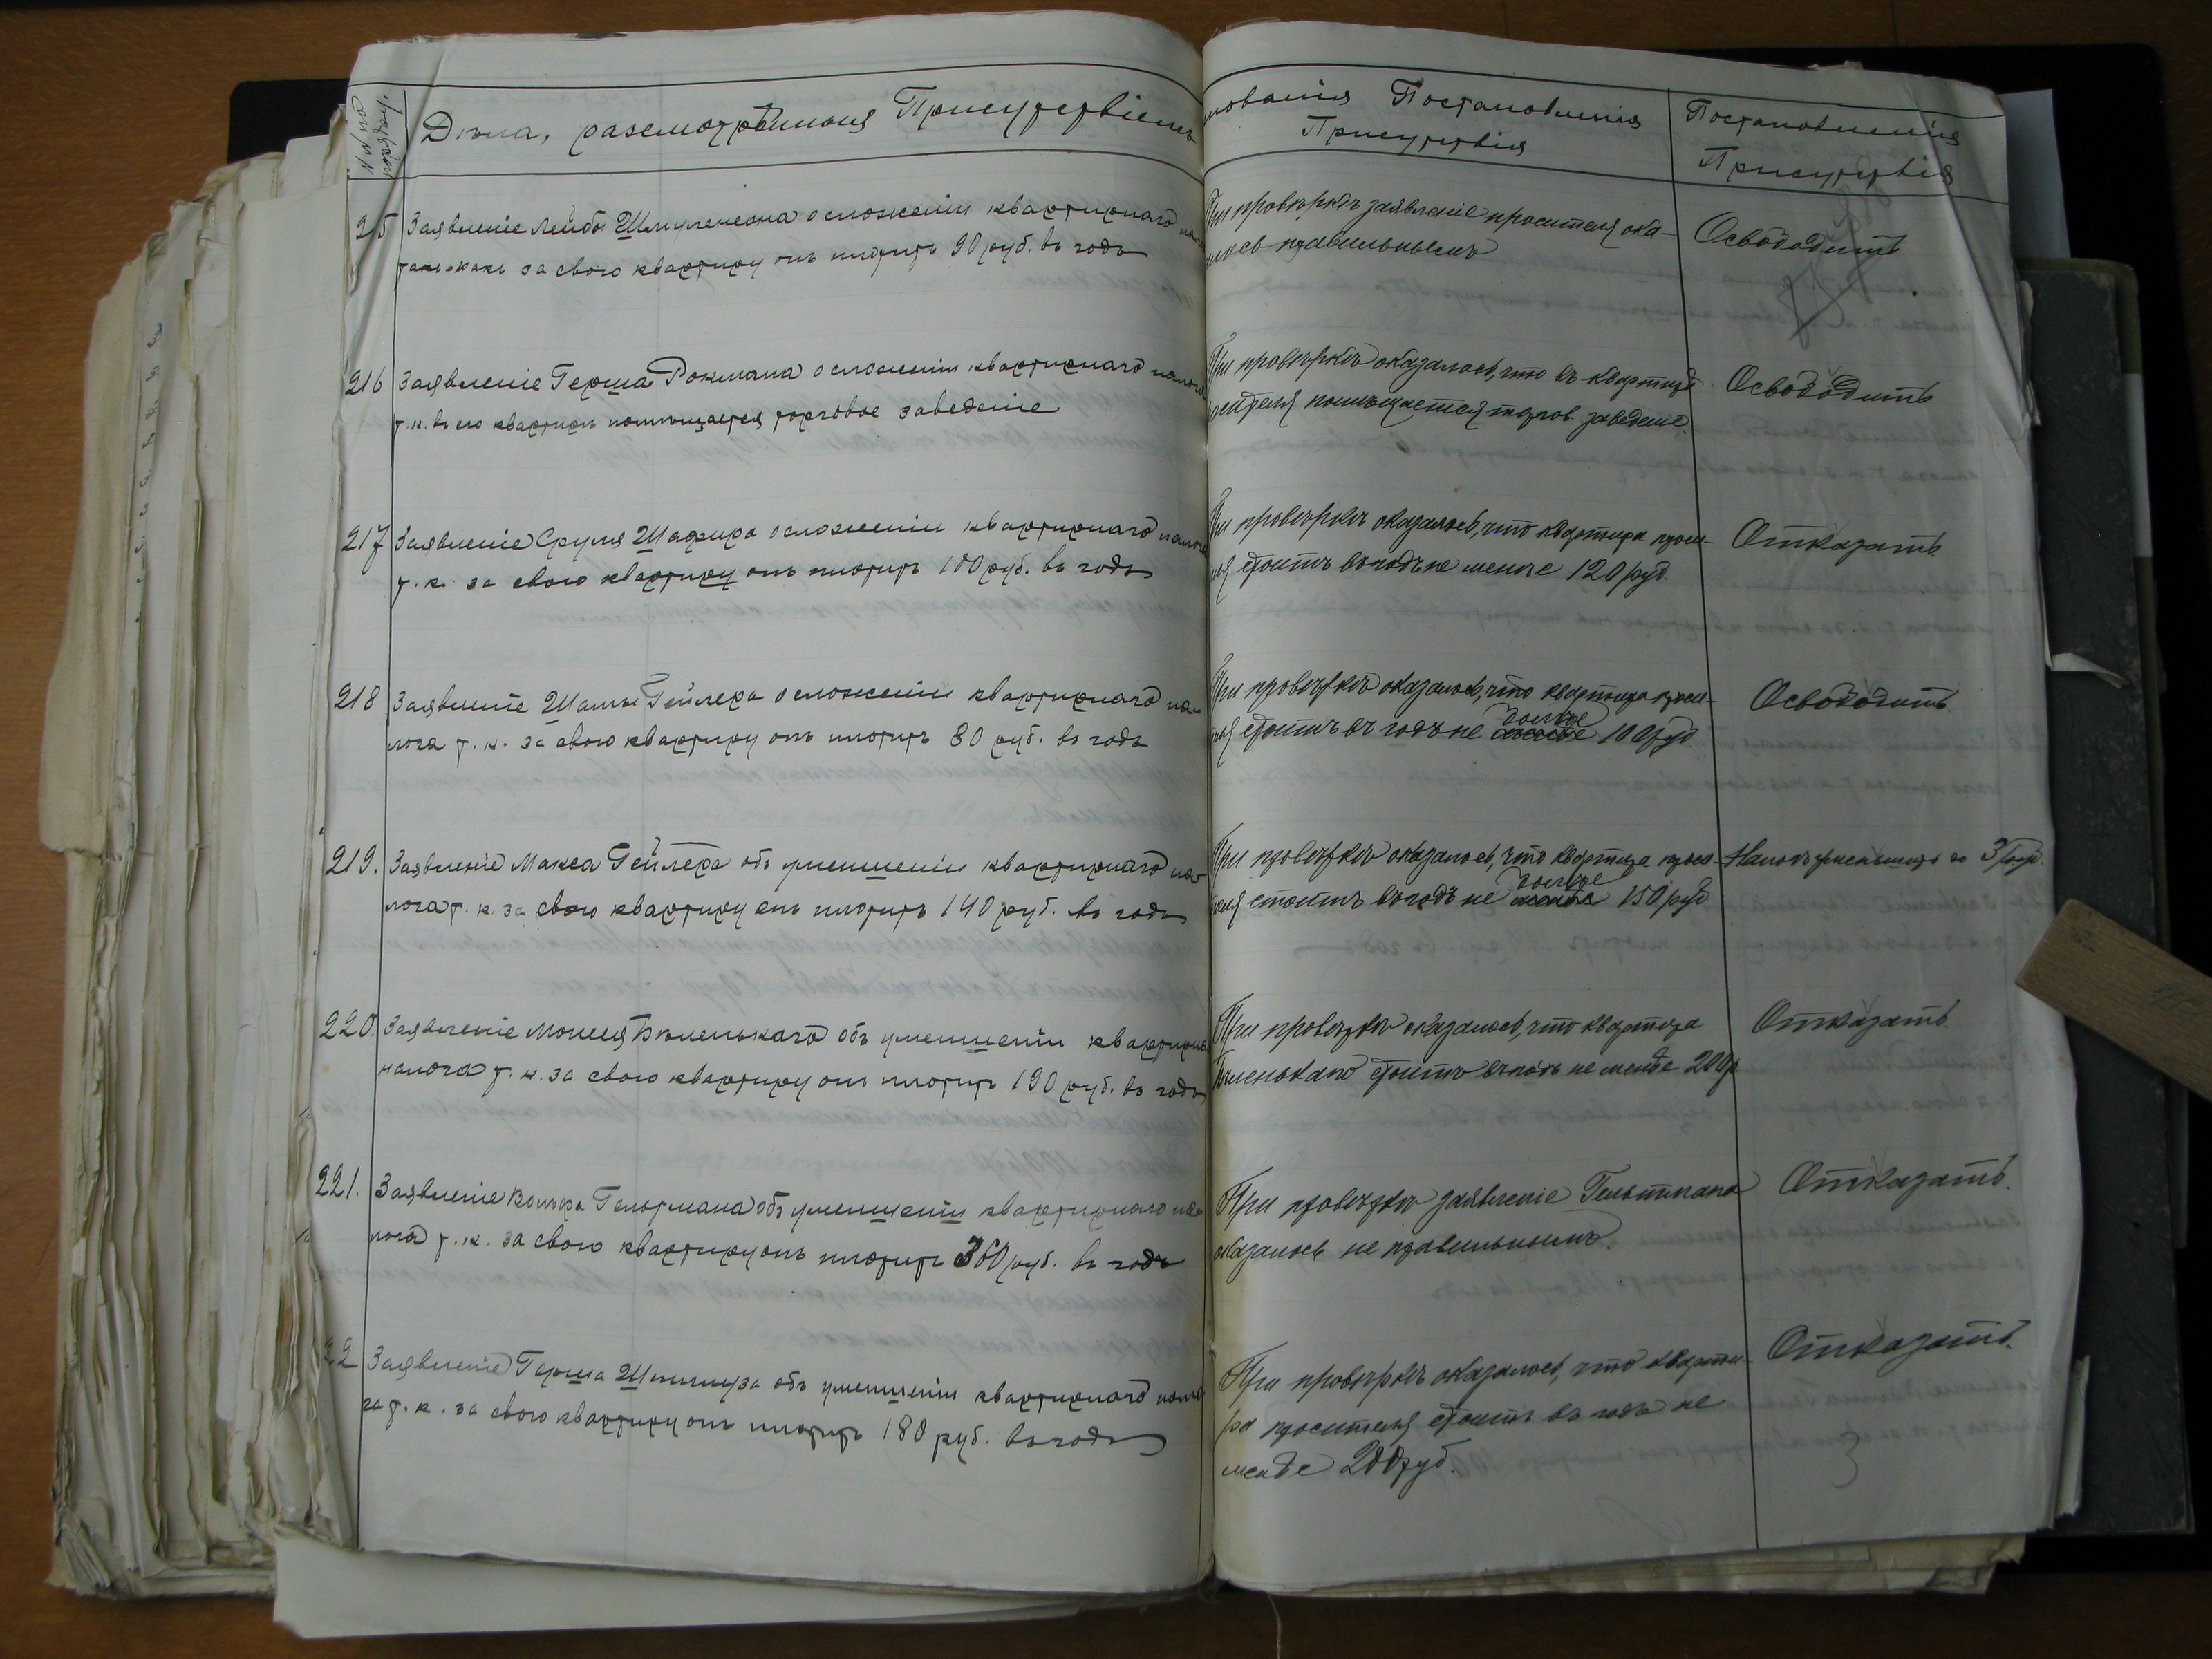 Дѣла, разсмотрѣнныя Присутствіемъ
нованія Постановленія
Присутствія
Постановленія
Присутствія
25 Заявленіе Лейбы о сложеніи квартирнаго
такъ какъ за свою квартиру онъ платитъ 90 руб. въ годъ
При провѣркѣ заявленіе просителя ока-
лось правильнымъ
Освободить
216 Заявленіе Герша Рохмана о сложеніи квартирнаго налога
т. к. въ его квартирѣ помѣщается торговое заведеніе
При провѣркѣ оказалось, что въ квартирѣ
сителя помѣщается торгов. заведеніе.
Освободить
217 Заявленіе Сруля Шафира о сложеніи квартирнаго налога
т. к. за свою квартиру онъ платитъ 100 руб. въ годъ
При провѣркѣ оказалось, что квартира проси-
ля стоитъ въ годъ не менѣе 120 руб.
Отказать
218 Заявленіе Шамы Гейлера о сложеніи квартирнаго на-
лога т. к. за свою квартиру онъ платитъ 80 руб. въ годъ
При провѣркѣ оказалось, что квартира проси-
ля стоитъ въ годъ не болѣе 100 руб
Освободить
219. Заявленіе Макса Гейлера объ уменшеніи квартирнаго на-
лога т. к. за свою квартиру онъ платитъ 140 руб. въ годъ
При провѣркѣ оказалось, что квартира проси-
теля стоитъ въ годъ не болѣе 150 руб
Налогъ уменьшить до 3 руб.
220. Заявленіе Мошея Бѣленькаго объ уменшеніи квартирна
налога т. к. за свою квартиру онъ платитъ 190 руб. въ годъ
При провѣркѣ оказалось, что квартира
Бѣленькаго стоитъ въ годъ не менѣе 200 р
Отказать
221. Заявленіе Вольфа Гельтмана объ уменшеніи квартирнаго на-
лога т. к. за свою квартиру онъ платитъ 360 руб. въ годъ
При провѣркѣ заявленіе Гельтмана
оказалось не правильнымъ.
Отказать.
22 Заявленіе Герша объ уменшеніи квартирнаго нало
га т. к. за свою квартиру онъ платитъ 180 руб. въ годъ
При провѣркѣ оказалось, что кварти-
ра просителя стоитъ въ годъ не
менѣе 200 руб.
Отказать.
3